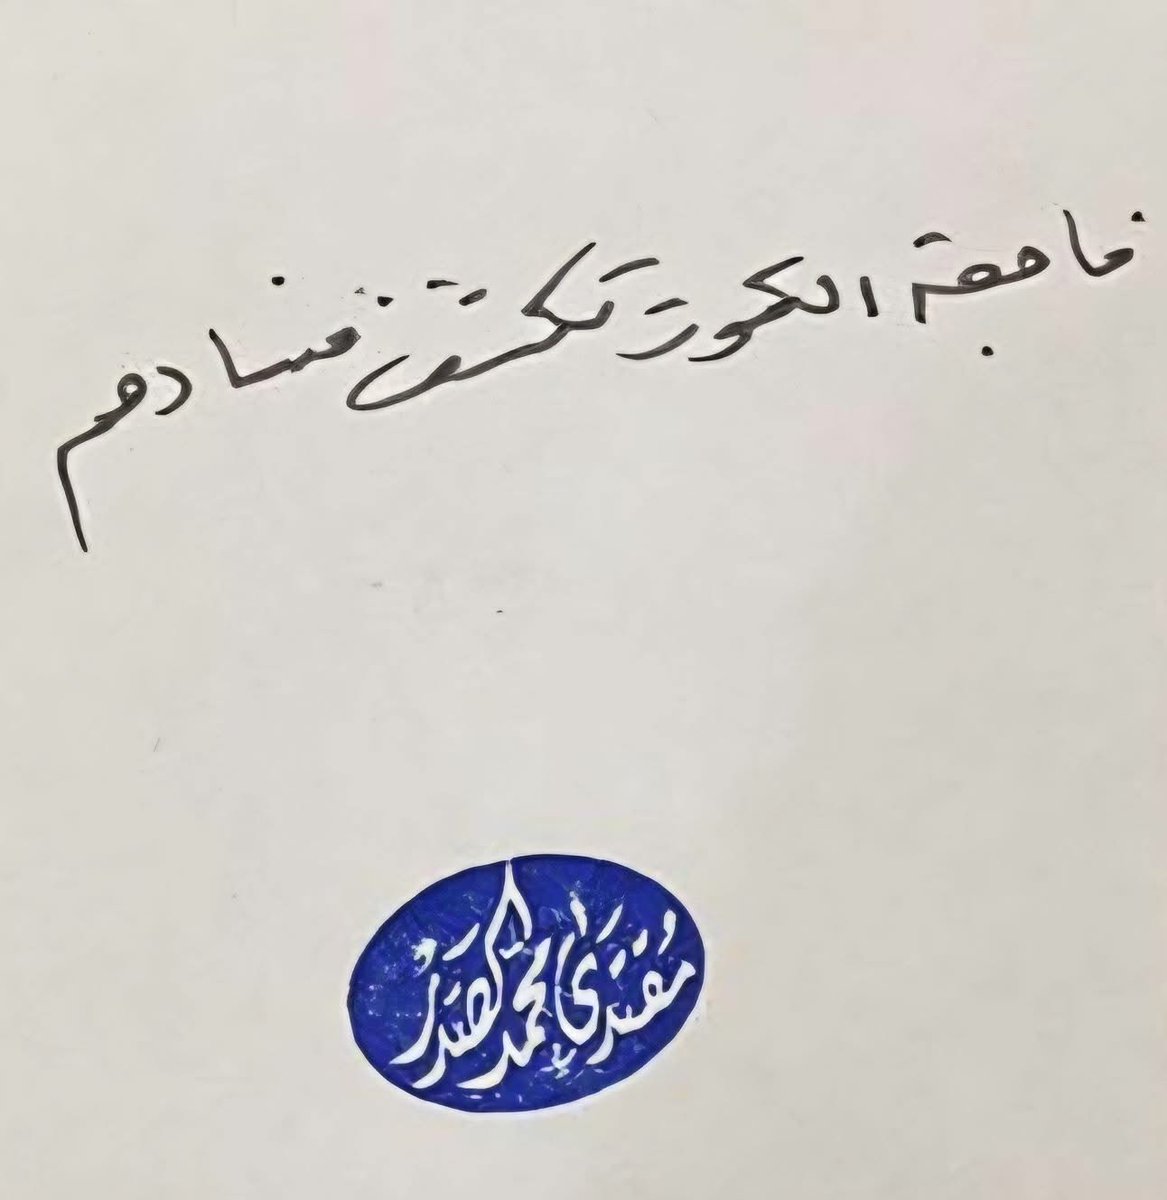 فاجعة الكوت تكشف فسادهم
مُقتدى محمد الصدر